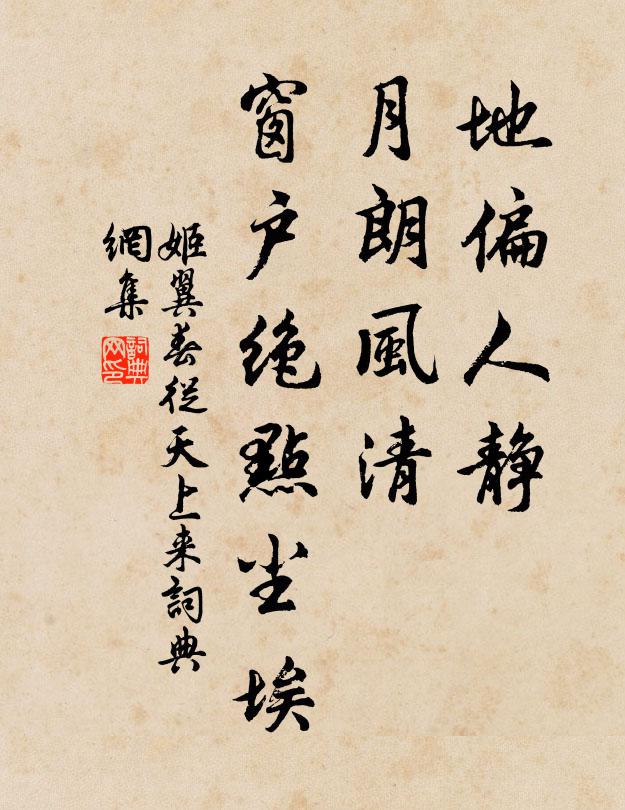 地偏人静
月朗風清
窗户绝點尘埃
姬翼春從天上来詞典
網集
詞典
网印